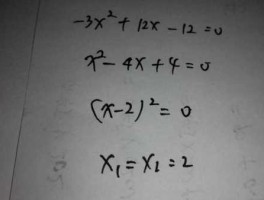 -3x² + 12x - 12 = 0
x² - 4x + 4 = 0
(x-2)² = 0
x₁ = x₂ = 2